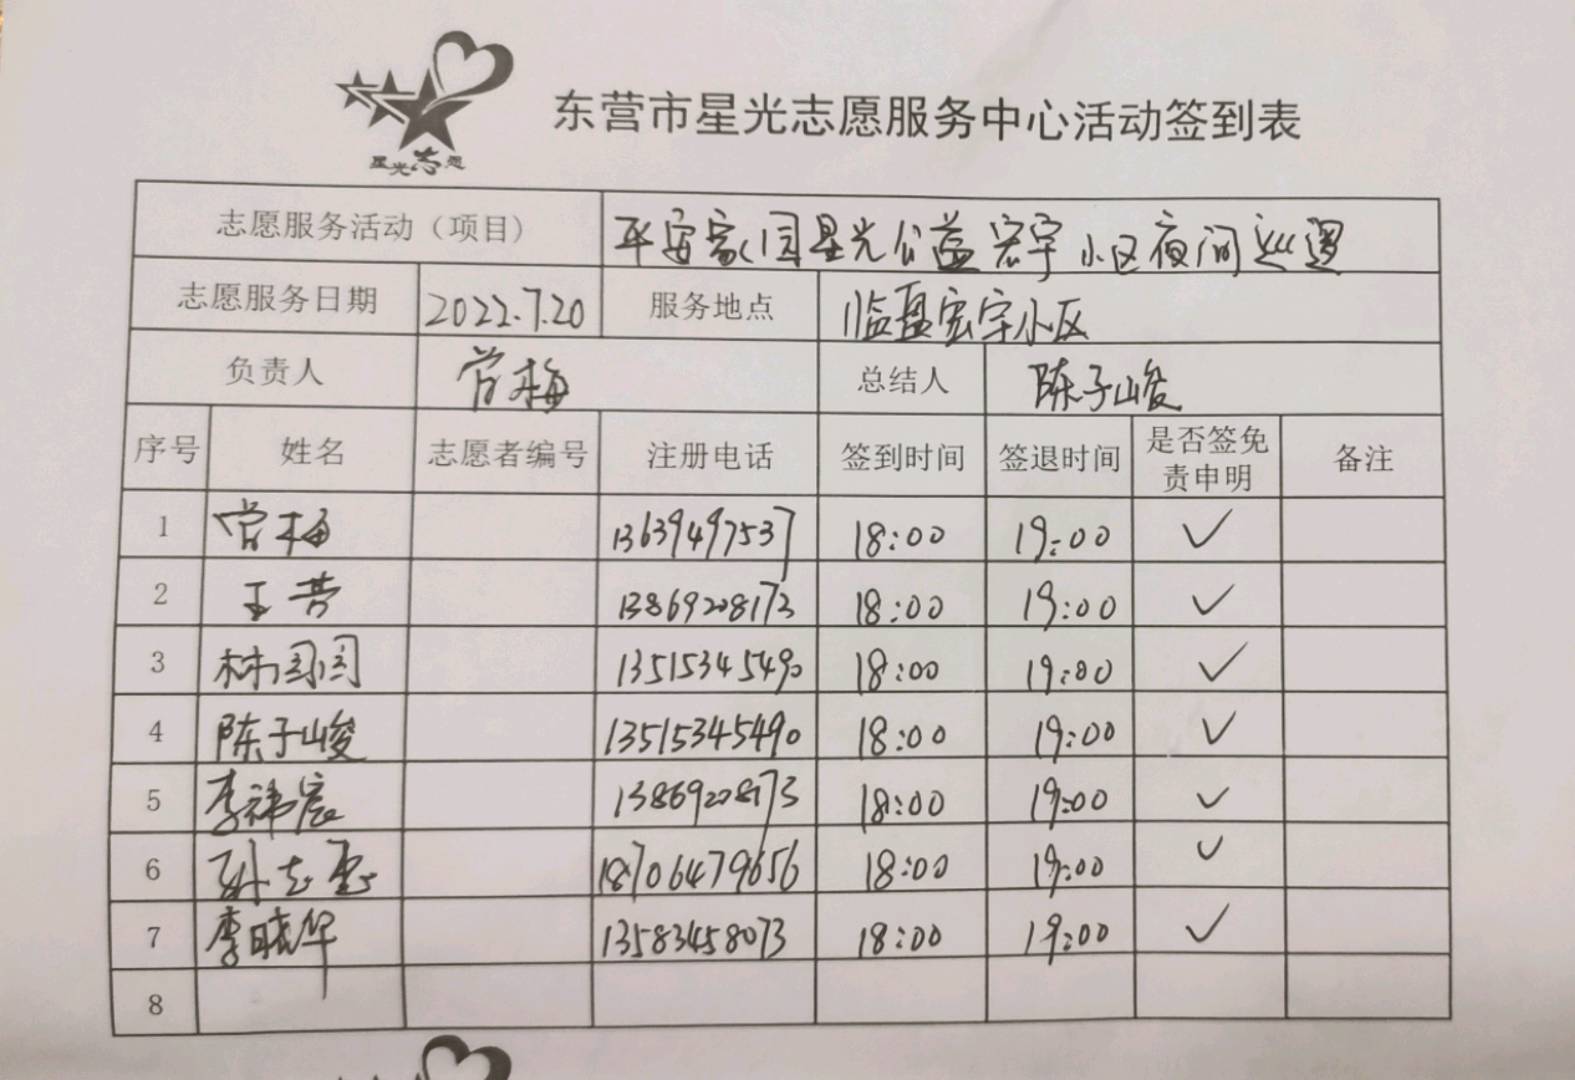 星光志愿
东营市星光志愿服务中心活动签到表
志愿服务活动（项目） 平安家园星光公益宏宇小区夜间巡逻
志愿服务日期 2022.7.20 服务地点 临盘宏宇小区
负责人 曾梅 总结人 陈子峻
序号 姓名 志愿者编号 注册电话 签到时间 签退时间 是否签免责申明 备注
1 曾梅 13639497537 18:00 19:00 ✓
2 王营 13869208173 18:00 19:00 ✓
3 林闺闺 13515345490 18:00 19:00 ✓
4 陈子峻 13515345490 18:00 19:00 ✓
5 李祎宸 13869208173 18:00 19:00 ✓
6 孙志 18706479656 18:00 19:00 ✓
7 李晓华 13583458073 18:00 19:00 ✓
8